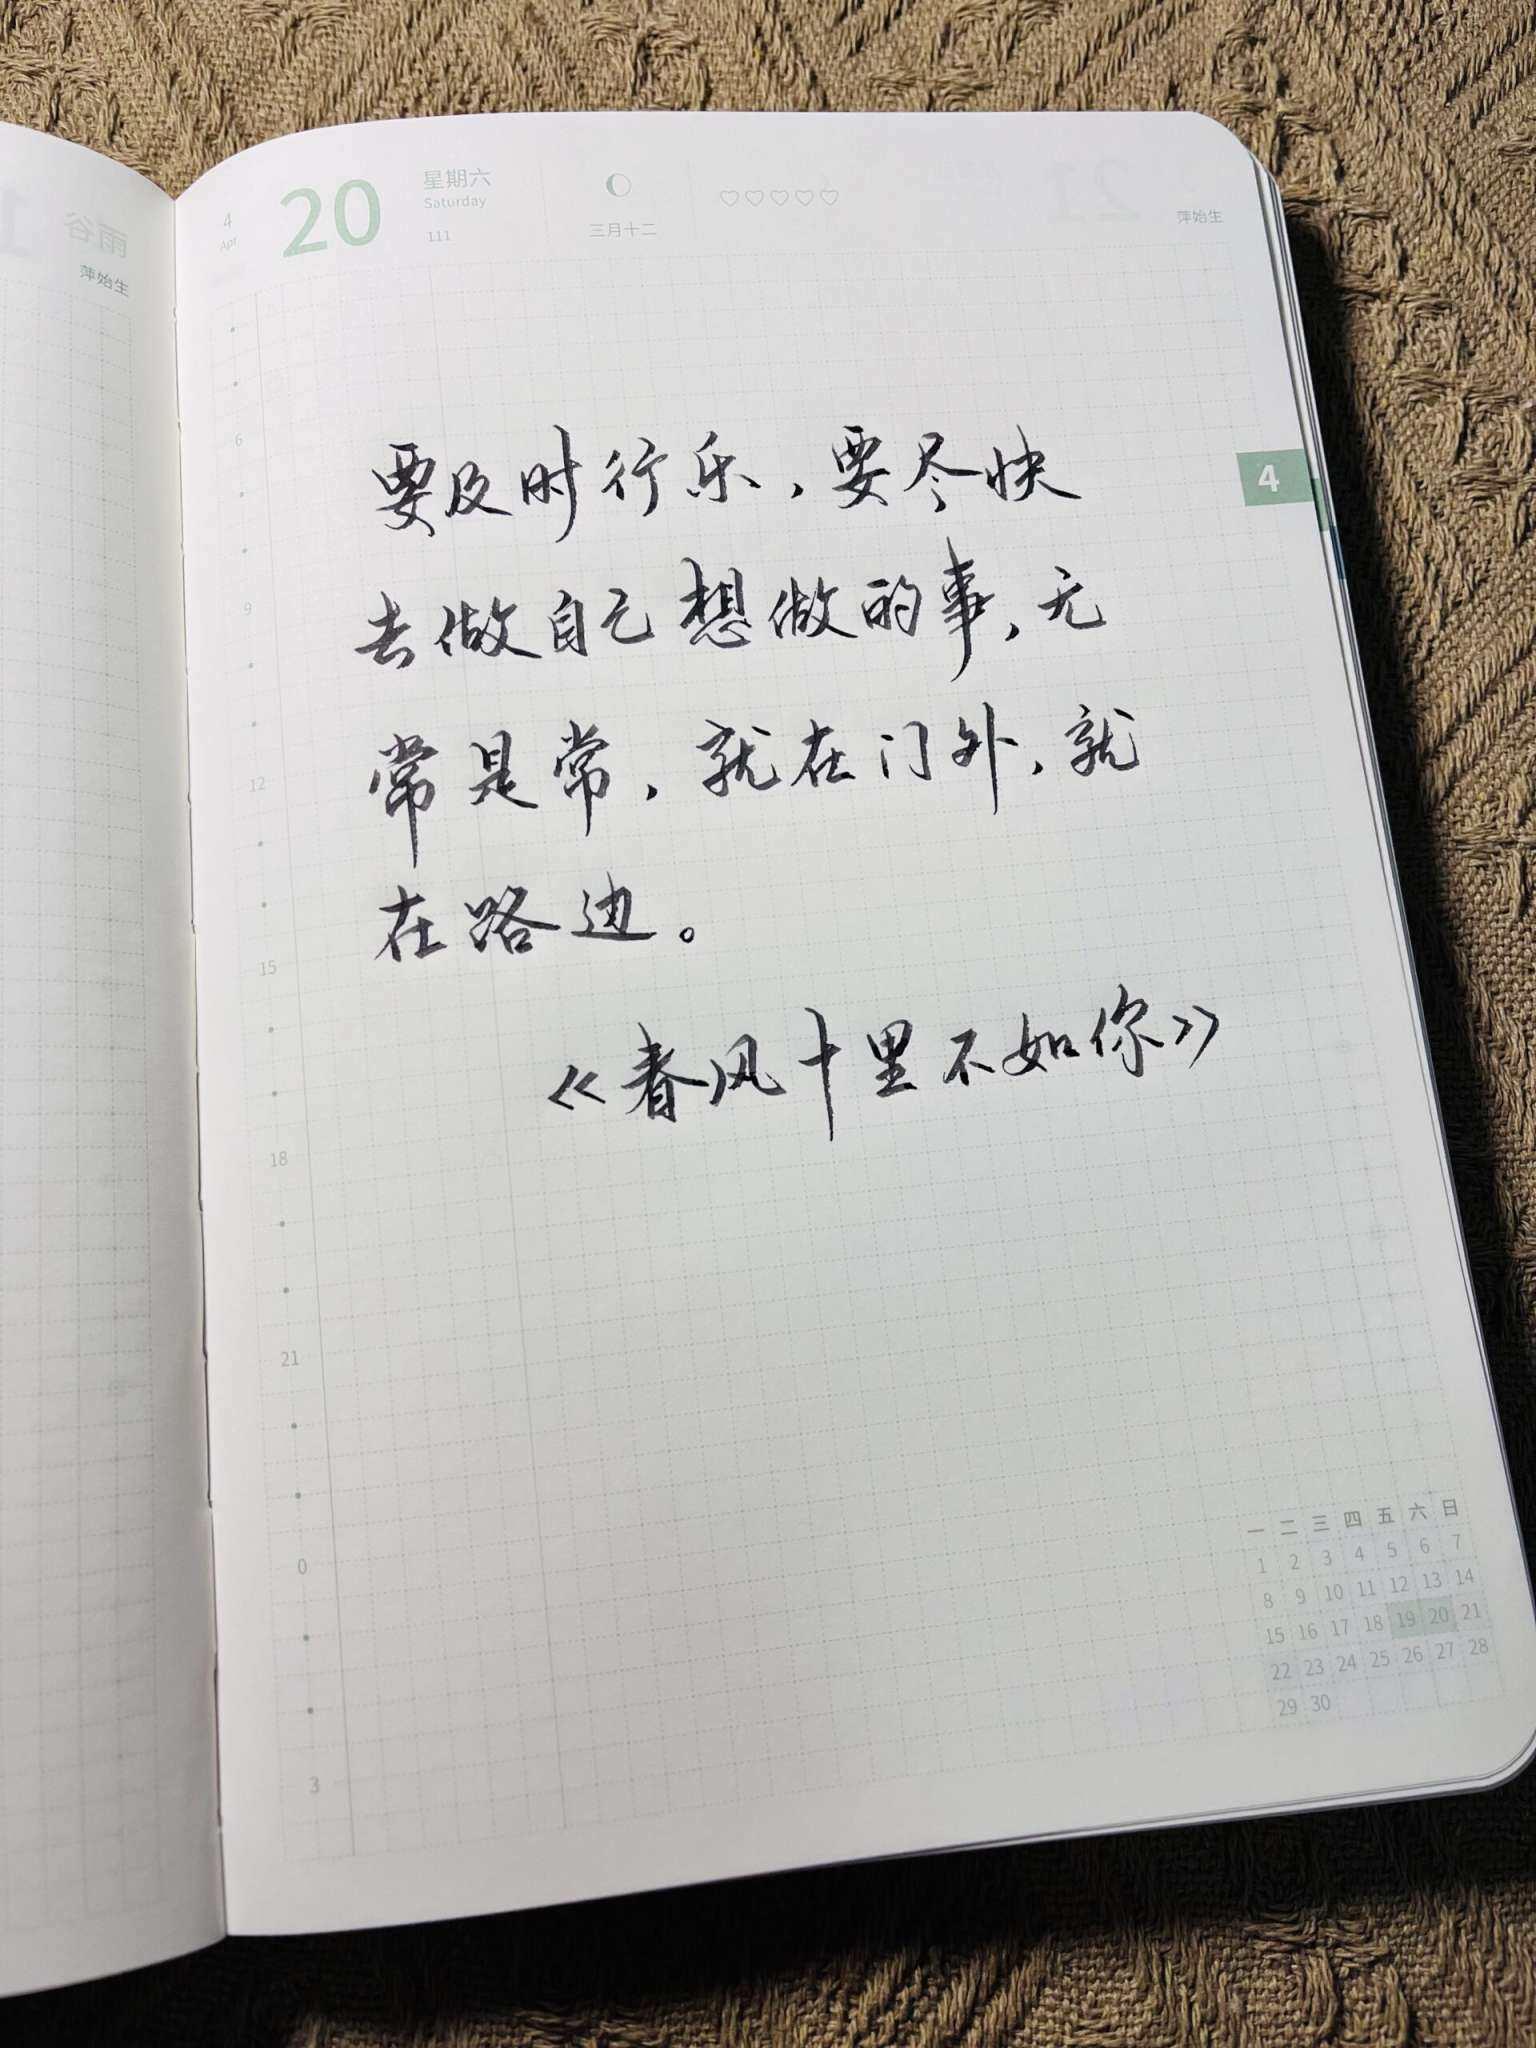 谷雨
萍始生
4
Apr
20
星期六
Saturday
111
三月十二
萍始生
4
6
9
12
15
18
21
0
3
要及时行乐，要尽快
去做自己想做的事，无
常是常，就在门外，就
在路边。
《春风十里不如你》
一 二 三 四 五 六 日
1 2 3 4 5 6 7
8 9 10 11 12 13 14
15 16 17 18 19 20 21
22 23 24 25 26 27 28
29 30